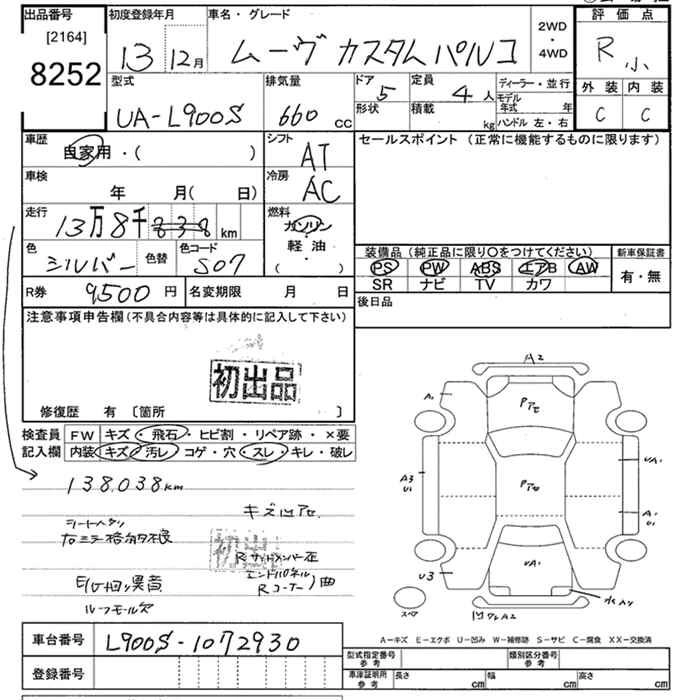 出品番号
[2164]
8252
初度登録年月
13年12月
車名・グレード
ムーヴ カスタムパルコ
2WD
・
4WD
評価点
R 小
外装 内装
C C
型式
UA-L900S
排気量
660 CC
ドア
5
定員
4人
形状
積載
kg
ディーラー・並行
モデル年式 年
ハンドル 左・右
車歴
自家用・( )
シフト
AT
セールスポイント (正常に機能するものに限ります)
車検
年 月( 日)
冷房
AC
走行
13万8千838km
燃料
ガソリン
・
軽油
・
( )
色
シルバー
色替
色コード
S07
装備品 (純正品に限り○をつけてください)
PS PW ABS エアB AW
SR ナビ TV カワ
新車保証書
有・無
R券
9500円
名変期限 月 日
後日品
注意事項申告欄 (不具合内容等は具体的に記入して下さい)
初出品
修復歴 有 〔箇所 〕
検査員
記入欄
FW キズ・飛石・ヒビ割・リペア跡・×要
内装 キズ・汚レ・コゲ・穴・スレ・キレ・破レ
138.038km
キズ凹アセ
初出
E/G
異音
ルーフモール欠
エンドパネル
Rコーナー
曲
A2
A1
Pアセ
Pアセ
A3
U1
UA1
A1
U1
U3
UA1
A2
スペア
A-キズ E-エクボ U-凹み W-補修跡 S-サビ C-腐食 XX-交換済
車台番号
L900S-1072930
登録番号
型式指定番号
参考
類別区分番号
参考
車庫証明所
参考
長さ cm
幅 cm
高さ cm